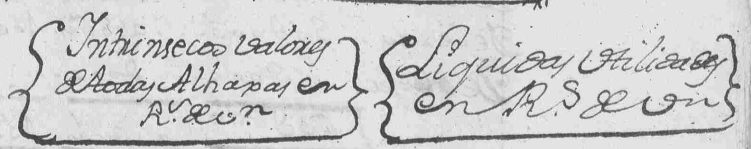 Intrinsecos valores
de todas Alhaxas en
R.ˢ de v.ⁿ
Liquidas Utilidades
en R.ˢ de v.ⁿ